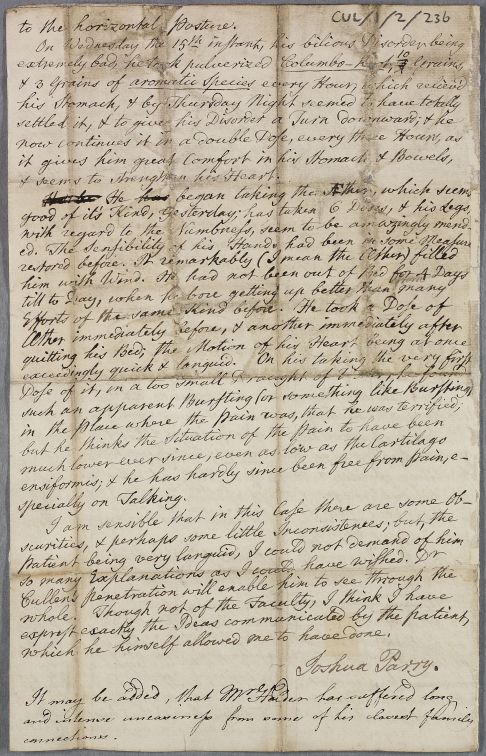 CUL/1/2/236
to the horizontal Posture.
On Wednesday the 15th instant, his bilious Disorder being
extremely bad he took pulverized Columbo-, 10 Grains,
& 3 Grains of aromatic Species every Hour, which reliev'd
his Stomach, & by Thursday Night seemed to have totally
settled it, & to give his Disorder a Turn downward; & he
now continues it in a double Dose, every three Hours, as
it gives him great Comfort in his Stomach & Bowels,
& seems to strengthen his Heart.
He began taking the Æther, which seems
good of it's Kind, Yesterday; has taken 6 Doses, & his Legs,
with regard to the Numbness, seem to be amazingly mend-
ed. The Sensibility of his Hands had been in some Measure
restored before. It remarkably (I mean the Æther) filled
him with Wind. He had not been out of Bed for 4 Days
till to Day, when he bore getting up better than many
Efforts of the same Kind before. He took a Dose of
Æther immediately before, & another immediately after
quitting his Bed; the Motion of his Heart being at once
exceedingly quick & languid. On his taking the very first
Dose of it, in a too small Draught of
such an apparent Bursting (or something like Bursting)
in the Place where the Pain was, that he was terrified;
but he thinks the Situation of the Pain to have been
much lower ever since, even as low as the Cartilago
ensiformis; & he has hardly since been free from Pain, e-
specially on Talking.
I am sensible that in this Case there are some Ob-
scurities, & perhaps some little Inconsistences; but, the
Patient being very languid, I could not demand of him
so many Explanations as I could have wished. Dr
Cullen's penetration will enable him to see through the
whole. Though not of the Faculty, I think I have
exprest exactly the Ideas communicated by the patient,
which he himself allowed me to have done.
Joshua Parry.
It may be added, that Mr. has suffered long
and intense uneasiness from some of his closest family
connections.